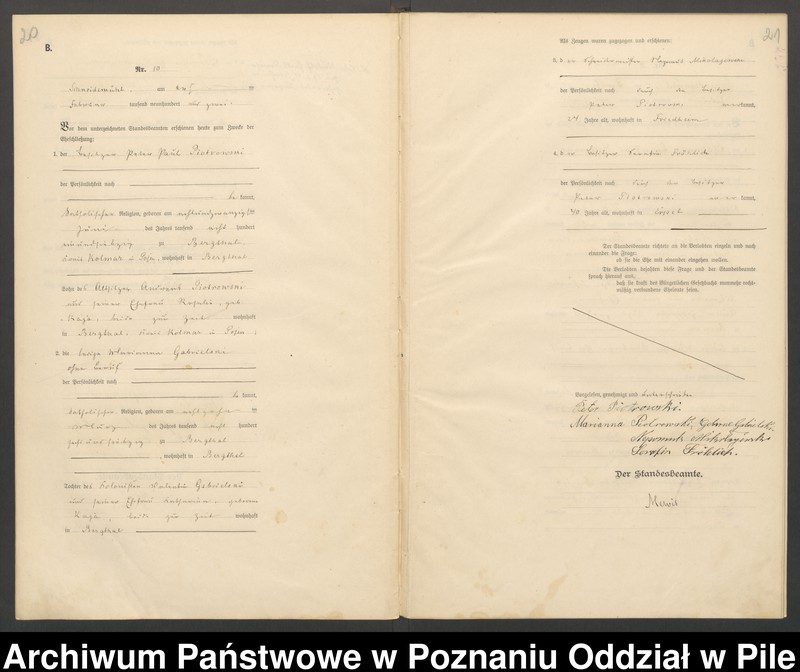 20
B.
Nr. 10
Schneidemühl, am
Februar tausend neunhundert und zwei
Vor dem unterzeichneten Standesbeamten erschienen heute zum Zwecke der
Eheschließung:
1. der Besitzer Peter Paul Piotrowski
der Persönlichkeit nach
be kannt,
katholischer Religion, geboren am achtundzwanzigsten
Juni des Jahres tausend acht hundert
zu Bergthal,
Kreis Kolmar in Posen, wohnhaft in Bergthal
Sohn des Altsitzer Andreas Piotrowski
und seiner Ehefrau Rosalie, geb.
beide zur Zeit wohnhaft
in Bergthal, Kreis Kolmar in Posen
2. die ledige Marianna Gabrielski
ohne Beruf
der Persönlichkeit nach
be kannt,
katholischer Religion, geboren am
des Jahres tausend acht hundert
zu Bergthal
, wohnhaft in Bergthal
Tochter des Kolonisten Valentin Gabrielski
und seiner Ehefrau Katharina, geborene
beide zur Zeit wohnhaft
in Bergthal
21
Als Zeugen waren zugezogen und erschienen:
3. der
der Persönlichkeit nach durch den Besitzer
Peter Piotrowski anerkannt,
Jahre alt, wohnhaft in Friedheim
4. der Besitzer Serafin Fröhlich
der Persönlichkeit nach durch den Besitzer
Peter Piotrowski kannt,
40 Jahre alt, wohnhaft in
Der Standesbeamte richtete an die Verlobten einzeln und nach
einander die Frage:
ob sie die Ehe mit einander eingehen wollen.
Die Verlobten bejahten diese Frage und der Standesbeamte
sprach hierauf aus,
daß sie kraft des Bürgerlichen Gesetzbuchs nunmehr recht-
mäßig verbundene Eheleute seien.
Vorgelesen, genehmigt und unterschrieben
Peter Piotrowski.
Marianna Piotrowski, geborene Gabrielski.
Serafin Fröhlich.
Der Standesbeamte.
Archiwum Państwowe w Poznaniu Oddział w Pile